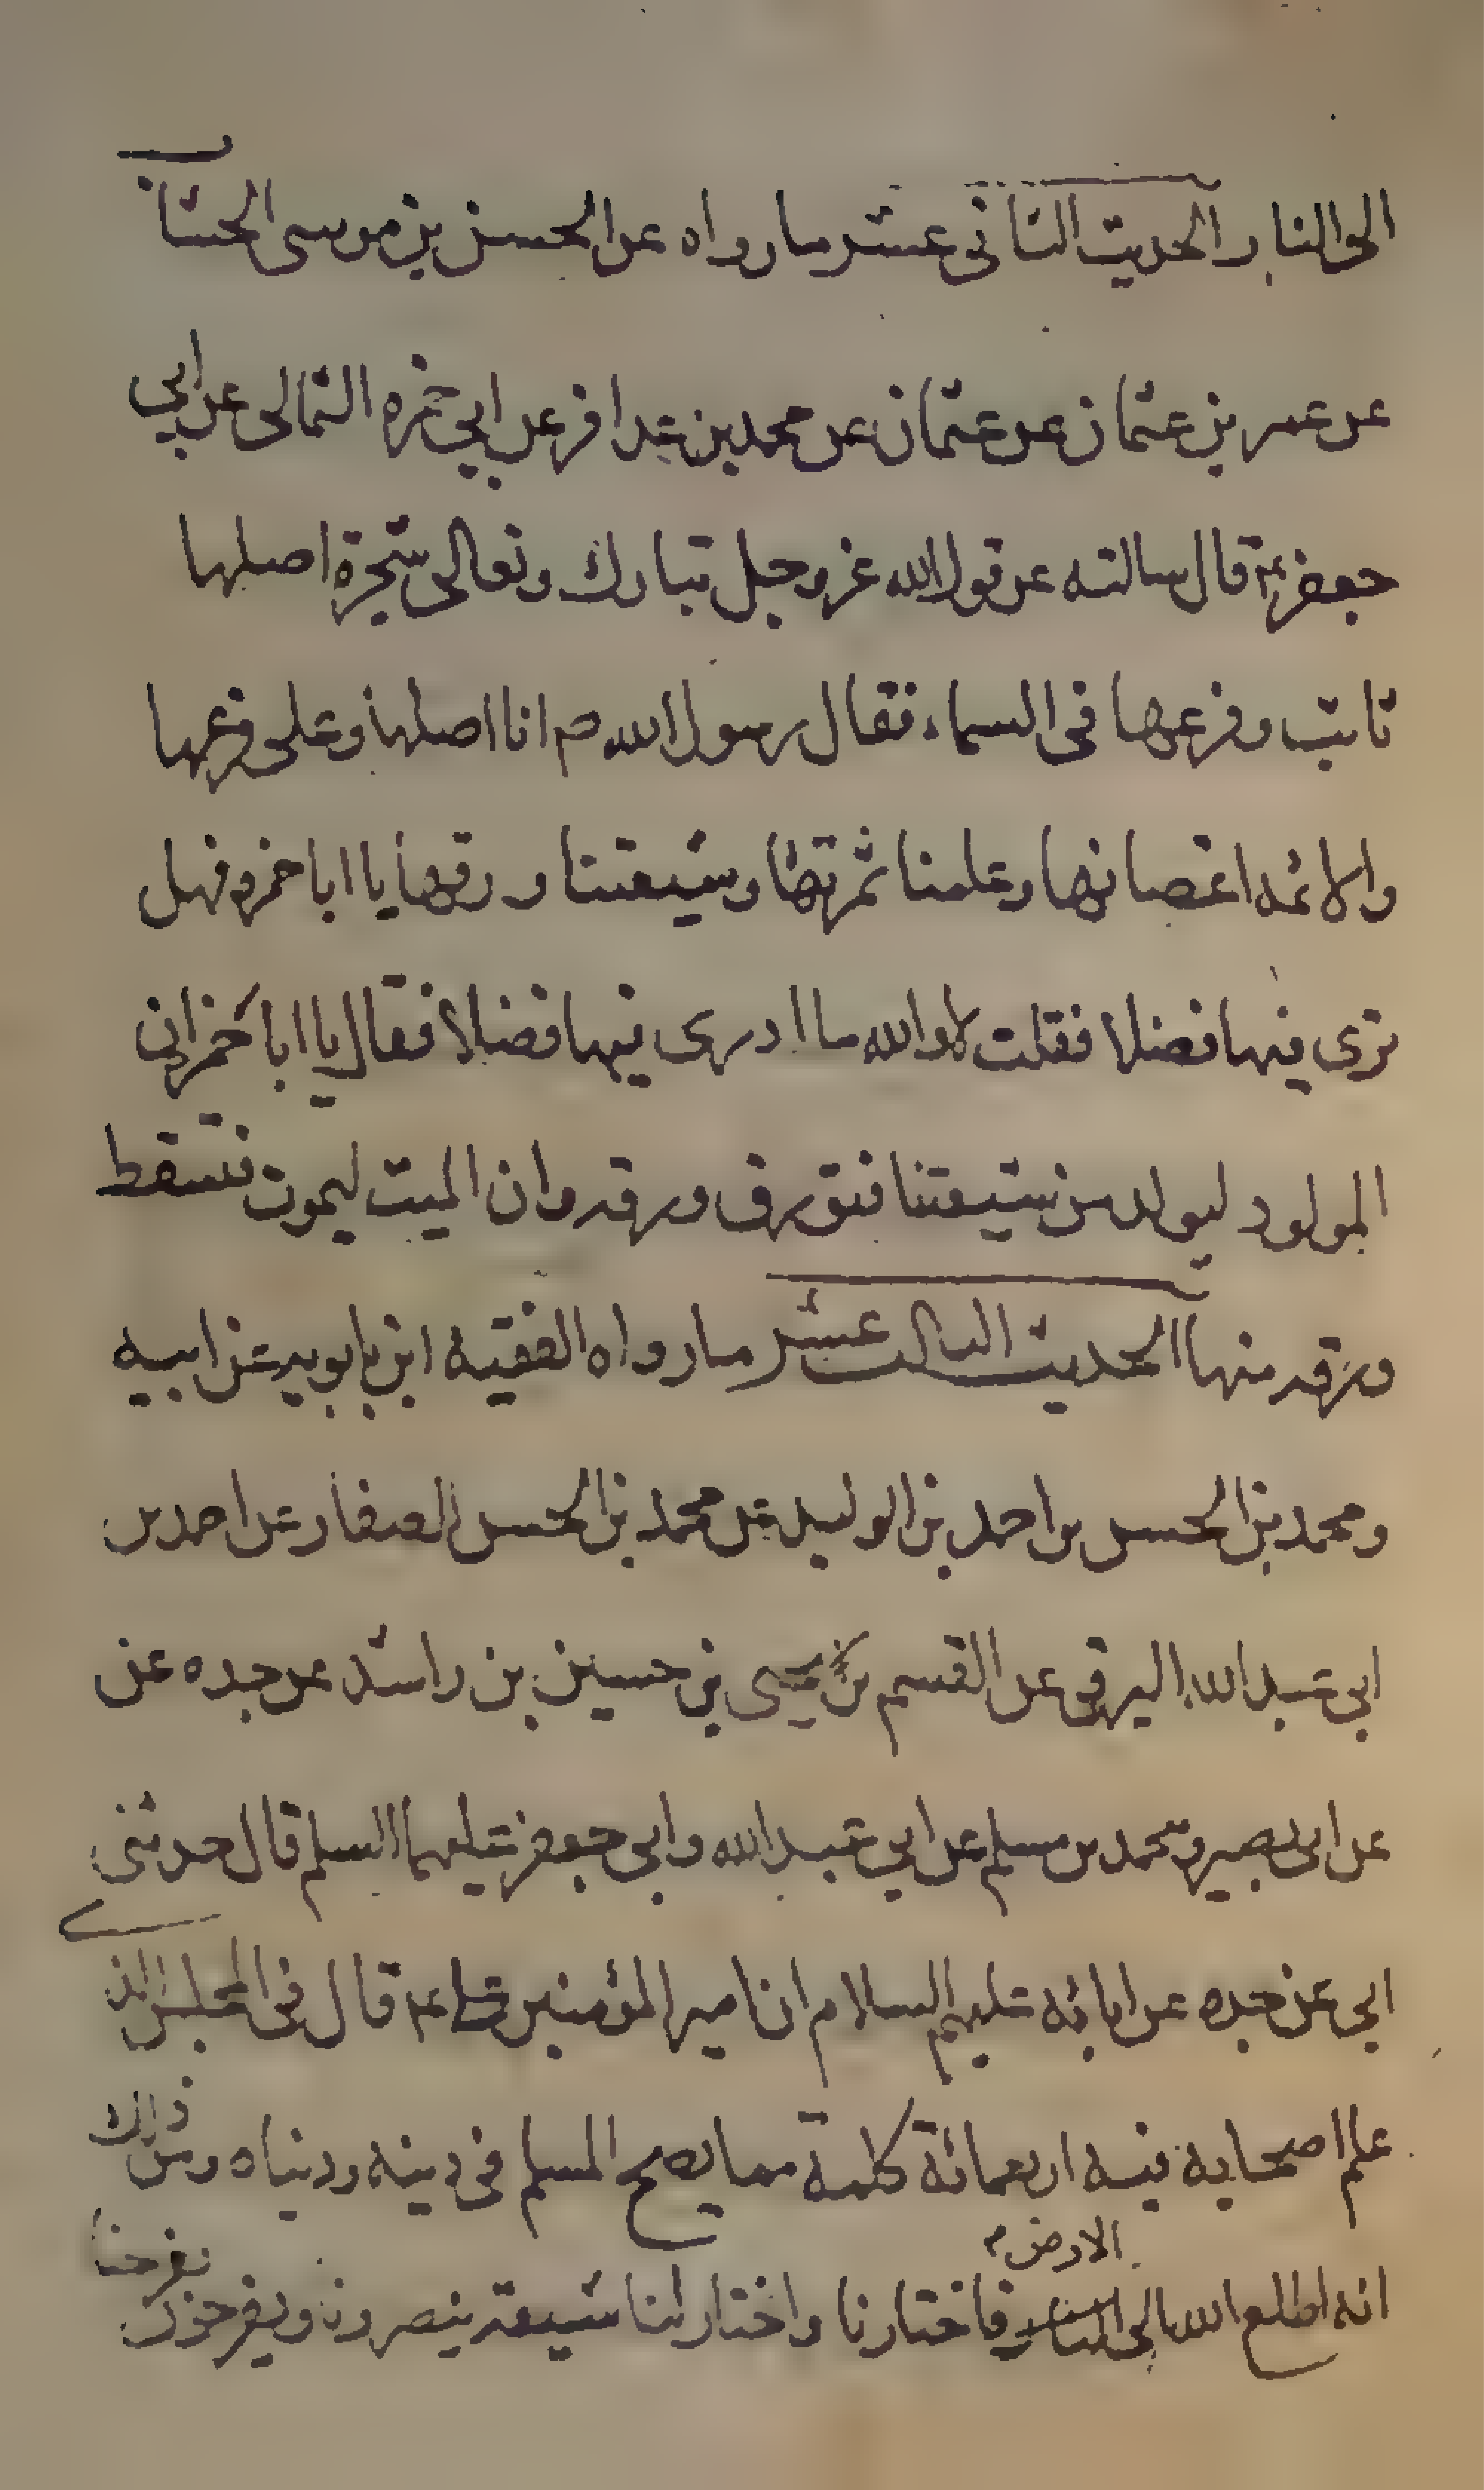 الى النار الحديث الثاني عشر ما رواه عن الحسن بن موسى الخشاب
عن عمر بن عثمان عن عثمان عن محمد بن عذافر عن ابي حمزه الثمالى عن ابي
جعفر ع قال سالته عن قول الله عز وجل تبارك وتعالى شجرة اصلها
ثابت وفرعها فى السماء فقال رسول الله ص انا اصلها وعلى فرعها
والائمه اغصانها وعلمنا ثمرتها وشيعتنا ورقها يا ابا حمزه فهل
ترى فيها فضلا فقلت لا والله ما ادرى فيها فضلا فقال يا ابا حمزه ان
المولود ليولد من شيعتنا فتورق ورقه وان الميت ليموت فتسقط
ورقه منها الحديث الثالث عشر ما رواه الفقيه ابن بابويه عن ابيه
ومحمد بن الحسن بن احمد بن الوليد عن محمد بن الحسن الصفار عن احمد بن
ابي عبد الله البرقى عن القسم بن يحيى بن حسين بن راشد عن جده عن
عن ابى بصير ومحمد بن مسلم عن ابي عبد الله وابى جعفر عليهما السلم قال حدثنى
ابى عن جده عن ابائه عليهم السلام ان امير المؤمنين ع قال فى المجلس الذى
علم اصحابه فيه اربعمائة كلمة مما يصلح المسلم فى دينه ودنياه ومن ذلك
الارض
انه اطلع الله الى فاختارنا واختار لنا شيعة ينصرونا ويفرحون بفرحنا